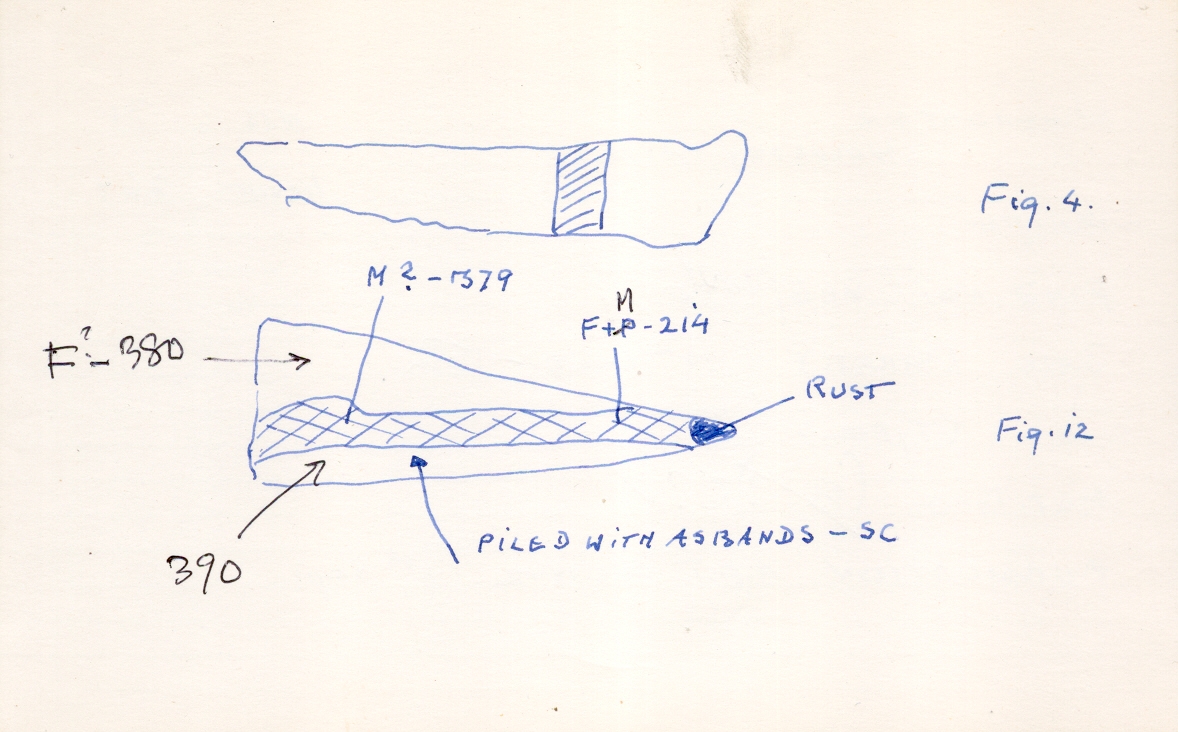 Fig. 4.
M ? - 379
M
F+P - 214
F? - 380
RUST
Fig. 12
PILED WITH AS BANDS - SC
390